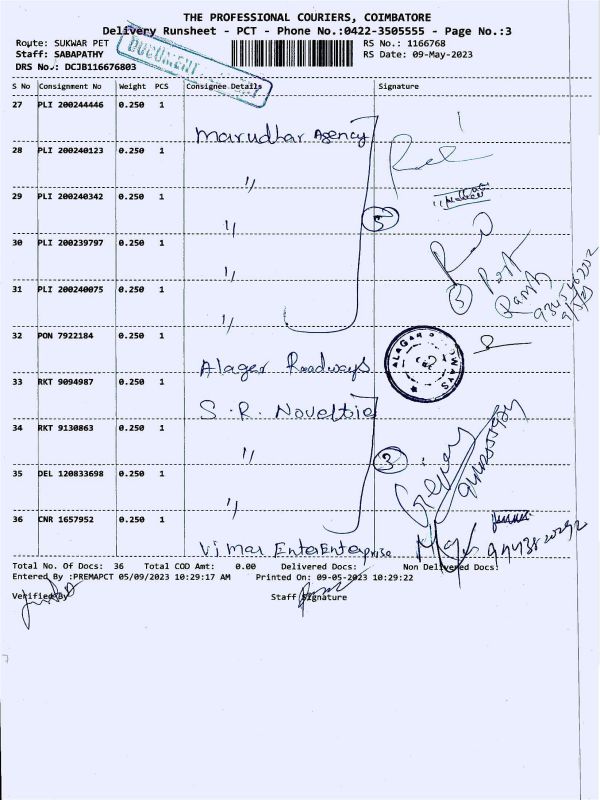 THE PROFESSIONAL COURIERS, COIMBATORE
Delivery Runsheet - PCT - Phone No.:0422-3505555 - Page No.:3
Route: SUKWAR PET RS No.: 1166768
Staff: SABAPATHY RS Date: 09-May-2023
DOCUMENT
DRS No.: DCJB116676803
S No Consignment No Weight PCS Consignee Details Signature
27 PLI 200244446 0.250 1
Marudhar Agency
28 PLI 200240123 0.250 1
"
29 PLI 200240342 0.250 1
" 5
30 PLI 200239797 0.250 1
"
31 PLI 200240075 0.250 1
"
32 PON 7922184 0.250 1
Alager Roadways
33 RKT 9094987 0.250 1
S.R. Noveltie
34 RKT 9130863 0.250 1
" 3
35 DEL 120833698 0.250 1
"
36 CNR 1657952 0.250 1
Vimal EnterEnterprise
Total No. Of Docs: 36 Total COD Amt: 0.00 Delivered Docs: Non Delivered Docs:
Entered By :PREMAPCT 05/09/2023 10:29:17 AM Printed On: 09-05-2023 10:29:22
Verified By Staff Signature